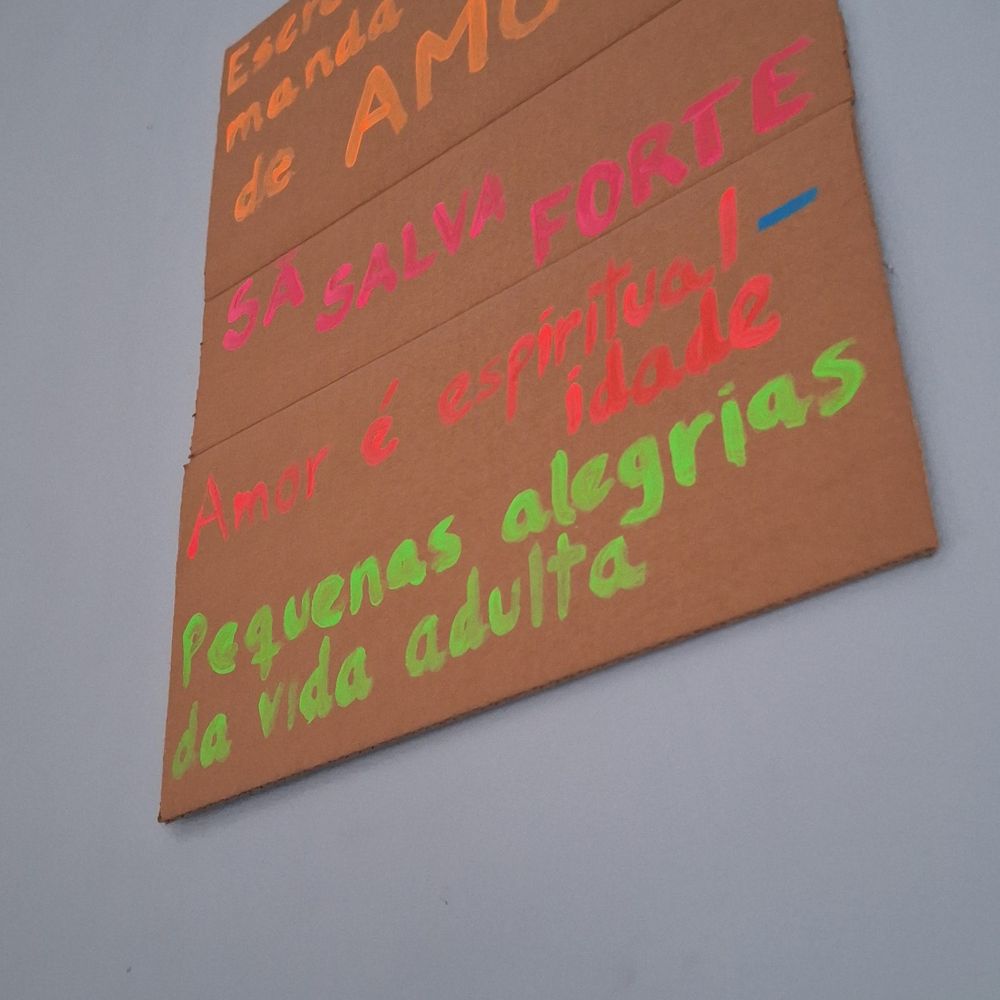 manda
de
SÃ SALVA FORTE
Amor é espiritual-
idade
Pequenas alegrias
da vida adulta